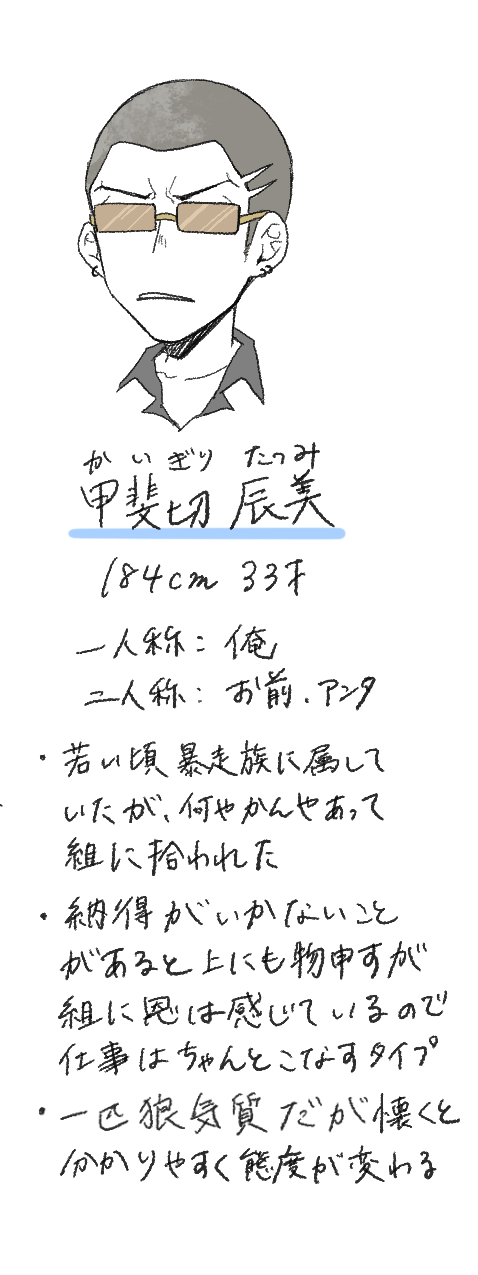 かいぎり たつみ
甲斐切 辰美
184cm 33才
一人称：俺
二人称：お前、アンタ
・若い頃暴走族に属して
いたが、何やかんやあって
組に拾われた
・納得がいかないこと
があると上にも物申すが
組に恩は感じているので
仕事はちゃんとこなすタイプ
・一匹狼気質だが懐くと
分かりやすく態度が変わる